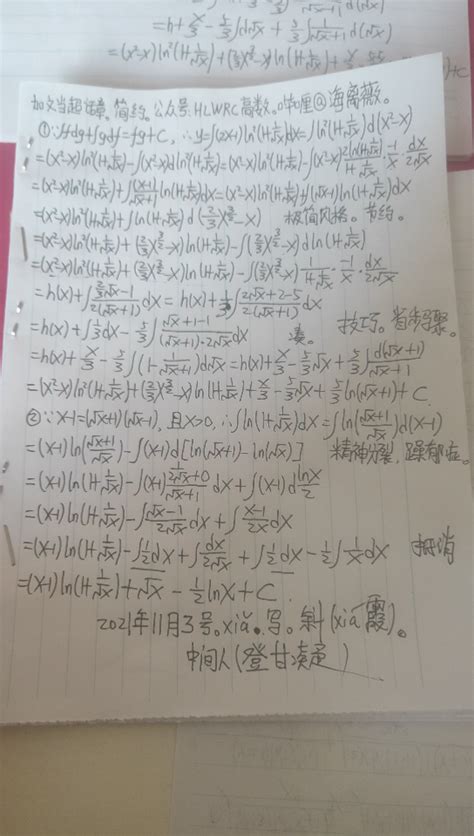 =h+x/3-5/3∫d√x+5/3∫1/(√x+1)d(√x)
=(x²-x)ln²(1+1/√x)+(2/3x^(3/2)-x)ln(1+1/√x)+x/3
简约。公众号:HLWRC高数。@海离薇。
①∵∫fdg+∫gdf=fg+C,∴y=∫(2x-1)ln²(1+1/√x)dx=∫ln²(1+1/√x)d(x²-x)
=(x²-x)ln²(1+1/√x)-∫(x²-x)dln²(1+1/√x)=(x²-x)ln²(1+1/√x)-∫(x²-x)2ln(1+1/√x)/(1+1/√x)·1/-x·dx/2√x
=(x²-x)ln²(1+1/√x)+∫(x-1)/(√x+1)ln(1+1/√x)dx=(x²-x)ln²(1+1/√x)+∫(√x-1)ln(1+1/√x)dx
=(x²-x)ln²(1+1/√x)+∫ln(1+1/√x)d(2/3x^(3/2)-x) 极简风格。节约。
=(x²-x)ln²(1+1/√x)+(2/3x^(3/2)-x)ln(1+1/√x)-∫(2/3x^(3/2)-x)dln(1+1/√x)
=(x²-x)ln²(1+1/√x)+(2/3x^(3/2)-x)ln(1+1/√x)-∫(2/3x^(3/2)-x)1/(1+1/√x)·1/-x·dx/2√x
=h(x)+∫(2/3√x-1)/2(√x+1)dx=h(x)+1/3∫(2√x+2-5)/2(√x+1)dx
=h(x)+∫1/3dx-5/3∫(√x+1-1)/(√x+1)·2√x dx 凑。 技巧。省步骤。
=h(x)+x/3-5/3∫(1-1/(√x+1))d√x=h(x)+x/3-5/3√x+5/3∫d(√x+1)/(√x+1)
=(x²-x)ln²(1+1/√x)+(2/3x^(3/2)-x)ln(1+1/√x)+x/3-5/3√x+5/3ln(√x+1)+C.
②∵x-1=(√x+1)(√x-1),且x>0,∴∫ln(1+1/√x)dx=∫ln((√x+1)/√x)d(x-1)
=(x-1)ln((√x+1)/√x)-∫(x-1)d[ln(√x+1)-ln(√x)] 精神分裂,躁郁症。
=(x-1)ln(1+1/√x)-∫(x-1)(1/2√x+0)/(√x+1)dx+∫(x-1)d lnx/2
=(x-1)ln(1+1/√x)-∫(√x-1)/2√x dx+∫(x-1)/2x dx
=(x-1)ln(1+1/√x)-∫1/2dx+∫dx/2√x+∫1/2dx-1/2∫1/x dx 抵消
=(x-1)ln(1+1/√x)+√x-1/2lnx+C.
2021年11月3号。xiǎ。写。斜(xiá霞)。
中间人(登甘凑)